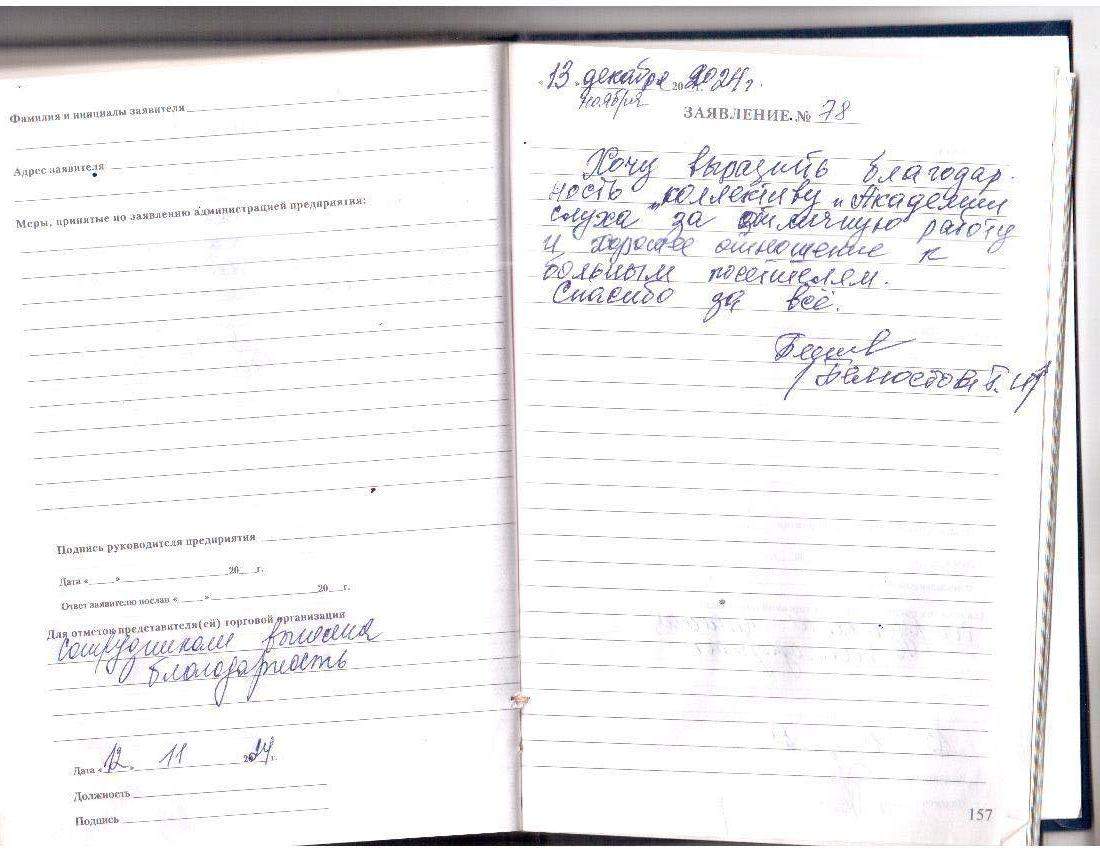 Фамилия и инициалы заявителя
Адрес заявителя
Меры, принятые по заявлению администрацией предприятия:
Подпись руководителя предприятия
Дата « » 20 г.
Ответ заявителю послан « » 20 г.
Для отметок представителя(ей) торговой организации
сотрудникам вынесена
благодарность
Дата «12» 11 2024 г.
Должность
Подпись
«13» декабря 20 2024 г.
ноября
ЗАЯВЛЕНИЕ № 78
Хочу выразить благодар-
ность коллективу „Академии
слуха за отличную работу
и хорошее отношение к
больным посетителям.
Спасибо за всё.
157